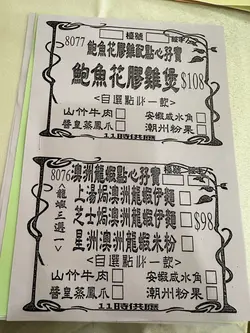 檯號
8077 鮑魚花膠雞配點心孖寶
鮑魚花膠雞煲 $108
<自選點心一款>
山竹牛肉□ 安蝦咸水角□
醬皇蒸鳳爪□ 潮州粉果□
11時供應
8076 澳洲龍蝦點心孖寶
<龍蝦三選一>
上湯焗澳洲龍蝦伊麵
芝士焗澳洲龍蝦伊麵
星洲澳洲龍蝦米粉
$98
<自選點心一款>
山竹牛肉□ 安蝦咸水角□
醬皇蒸鳳爪□ 潮州粉果□
11時供應